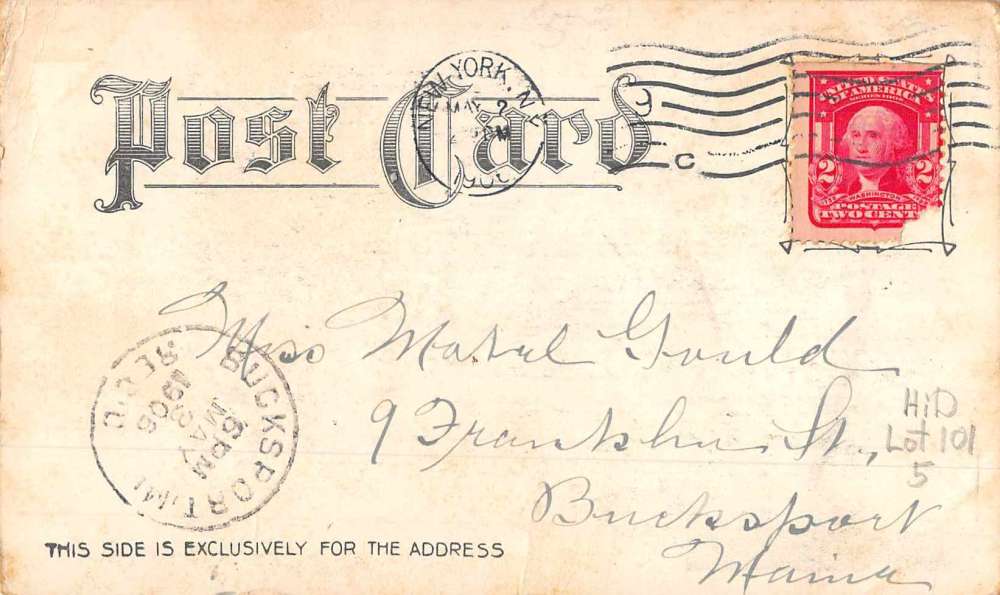 Post Card
NEW YORK, N.Y.
MAY 2
1906
C
UNITED STATES
OF AMERICA
SERIES 1902
2 2
1732 WASHINGTON 1799
POSTAGE
TWO CENT
Miss Mabel Gould
9 Franklin St,
Bucksport
Maine
HiD
Lot 101
5
BUCKSPORT
6 PM
MAY
3
1906
REC'D
THIS SIDE IS EXCLUSIVELY FOR THE ADDRESS